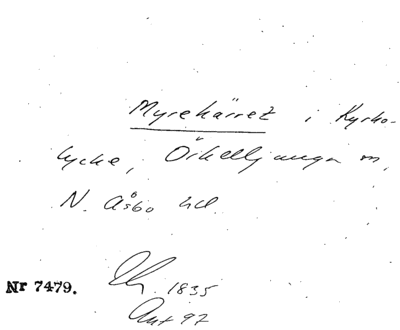 Myrekärret i Kyrko-
lycke, Örkelljunga m,
N. Åsbo hd.
1835
Nr 7479.
Ant 97